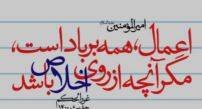 امیرالمؤمنین
اعمال، همه بر باد است،
مگر آنچه از روی اخلاص باشد